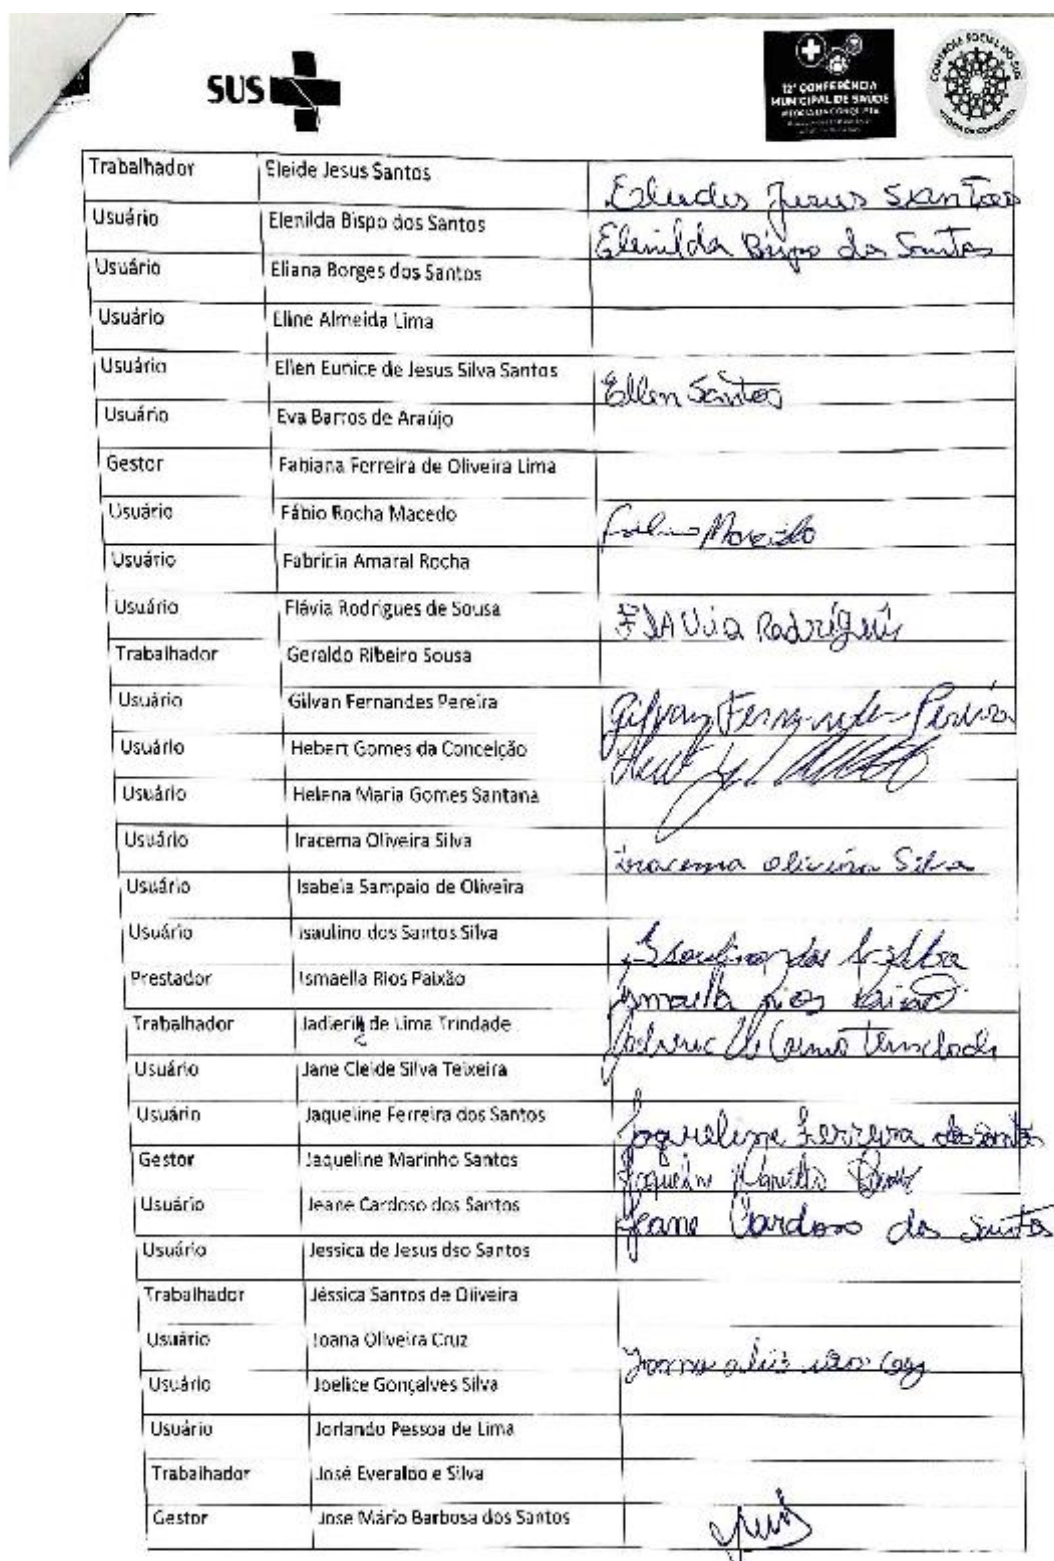 SUS
12ª CONFERÊNCIA
MUNICIPAL DE SAÚDE
VITÓRIA DA CONQUISTA
CONTROLE SOCIAL DO SUS
VITÓRIA DA CONQUISTA
Trabalhador Eleide Jesus Santos Jesus Santos
Usuário Elenilda Bispo dos Santos Elenilda Bispo dos Santos
Usuário Eliana Borges dos Santos
Usuário Eline Almeida Lima
Usuário Ellen Eunice de Jesus Silva Santos Ellen Santos
Usuário Eva Barros de Araújo
Gestor Fabiana Ferreira de Oliveira Lima
Usuário Fábio Rocha Macedo Macedo
Usuário Fabricia Amaral Rocha
Usuário Flávia Rodrigues de Sousa Flavia Rodrigues
Trabalhador Geraldo Ribeiro Sousa
Usuário Gilvan Fernandes Pereira Gilvan Fernandes Pereira
Usuário Hebert Gomes da Conceição
Usuário Helena Maria Gomes Santana
Usuário Iracema Oliveira Silva iracema oliveira Silva
Usuário Isabela Sampaio de Oliveira
Usuário Isaulino dos Santos Silva Isaulino dos
Prestador Ismaella Rios Paixão Ismaella rios Paixão
Trabalhador Jadierily de Lima Trindade
Usuário Jane Cleide Silva Teixeira
Usuário Jaqueline Ferreira dos Santos Jaqueline Ferreira dos Santos
Gestor Jaqueline Marinho Santos Jaqueline
Usuário Jeane Cardoso dos Santos Jeane Cardoso dos Santos
Usuário Jessica de Jesus dso Santos
Trabalhador Jéssica Santos de Oliveira
Usuário Joana Oliveira Cruz
Usuário Joelice Gonçalves Silva
Usuário Jorlando Pessoa de Lima
Trabalhador José Everaldo e Silva
Gestor Jose Mário Barbosa dos Santos